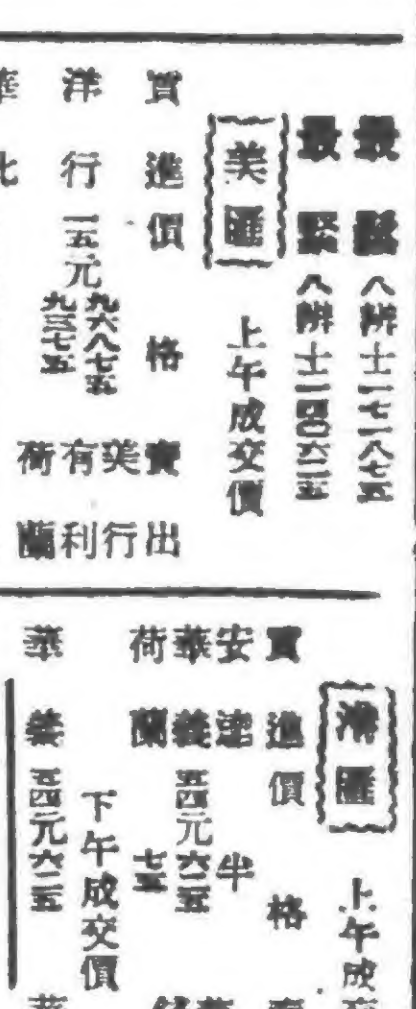 最緊 八辨士一七一八七五
最緊 八辨士一四〇六二五
美匯 上午成交價
買進價格 賣出
洋行 一五元九六八七五 美行
九三七五 有利
華比 荷蘭
港匯 上午成交
買進價格
安達 半
華義 五四元六二五
荷蘭 七五
下午成交價
華義 五四元六二五